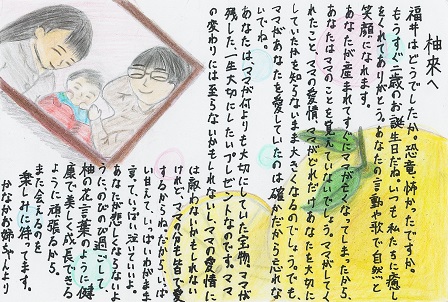 柚来へ
福井はどうでしたか。恐竜、怖かったですか。
もうすぐ二歳のお誕生日だね。いつも私たちに癒し
をくれてありがとう。あなたの言動や歌で自然と
笑顔になれます。
あなたが産まれてすぐにママが亡くなってしまったから、
あなたはママのことを覚えていないでしょう。ママがしてく
れたこと、ママの愛情、ママがどれだけあなたを大切に
していたかを知らないまま大きくなるのでしょう。でも、
ママがあなたを愛していたのは確かだから忘れな
いでね。
あなたは、ママが何よりも大切にしていた宝物。ママが
残した、一生大切にしたいプレゼントなのです。ママ
の変わりには至らないかもしれないし、ママの愛情に
は敵わないかもしれない
けれど、ママの分も皆で愛
するからね。だから、いっぱ
い甘えて、いっぱいわがまま
言って、いっぱい泣いていいよ。
あなたが悲しくならないよ
うに、のびのび過ごして
柚の花言葉のように健
康で美しく成長できる
ように頑張るから。
また会えるのを
楽しみに待ってます。
かなかお姉ちゃんより